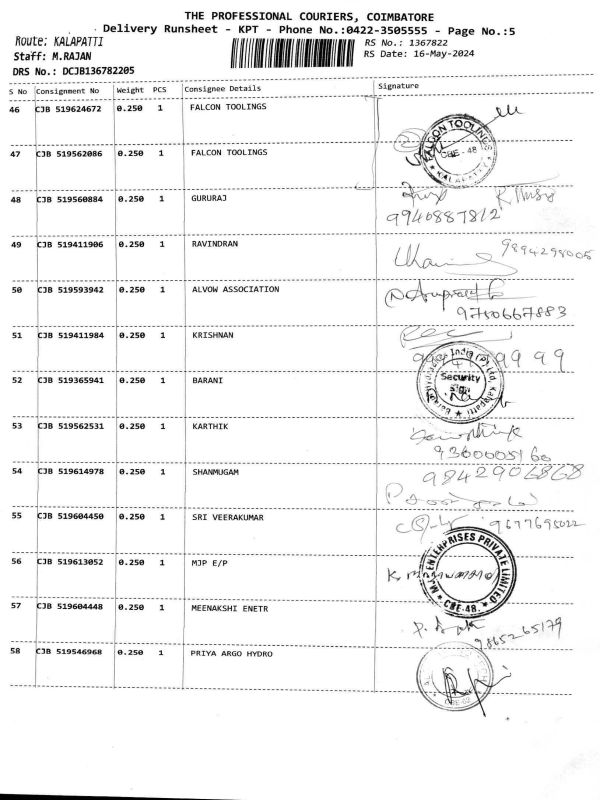 THE PROFESSIONAL COURIERS, COIMBATORE
Delivery Runsheet - KPT - Phone No.:0422-3505555 - Page No.:5
Route: KALAPATTI
RS No.: 1367822
Staff: M.RAJAN
RS Date: 16-May-2024
DRS No.: DCJB136782205
S No Consignment No Weight PCS Consignee Details Signature
46 CJB 519624672 0.250 1 FALCON TOOLINGS
FALCON TOOLINGS CBE - 48 KALAPATTY
47 CJB 519562086 0.250 1 FALCON TOOLINGS
48 CJB 519560884 0.250 1 GURURAJ
9940887812
49 CJB 519411906 0.250 1 RAVINDRAN
9894298005
50 CJB 519593942 0.250 1 ALVOW ASSOCIATION
9750667883
51 CJB 519411984 0.250 1 KRISHNAN
52 CJB 519365941 0.250 1 BARANI
India (P) Ltd, Kalapatti Security
53 CJB 519562531 0.250 1 KARTHIK
9360005160
54 CJB 519614978 0.250 1 SHANMUGAM
9842906868
55 CJB 519604450 0.250 1 SRI VEERAKUMAR
9677695022
56 CJB 519613052 0.250 1 MJP E/P
ENTERPRISES PRIVATE LIMITED CBE-48.
57 CJB 519604448 0.250 1 MEENAKSHI ENETR
9865265179
58 CJB 519546968 0.250 1 PRIYA ARGO HYDRO